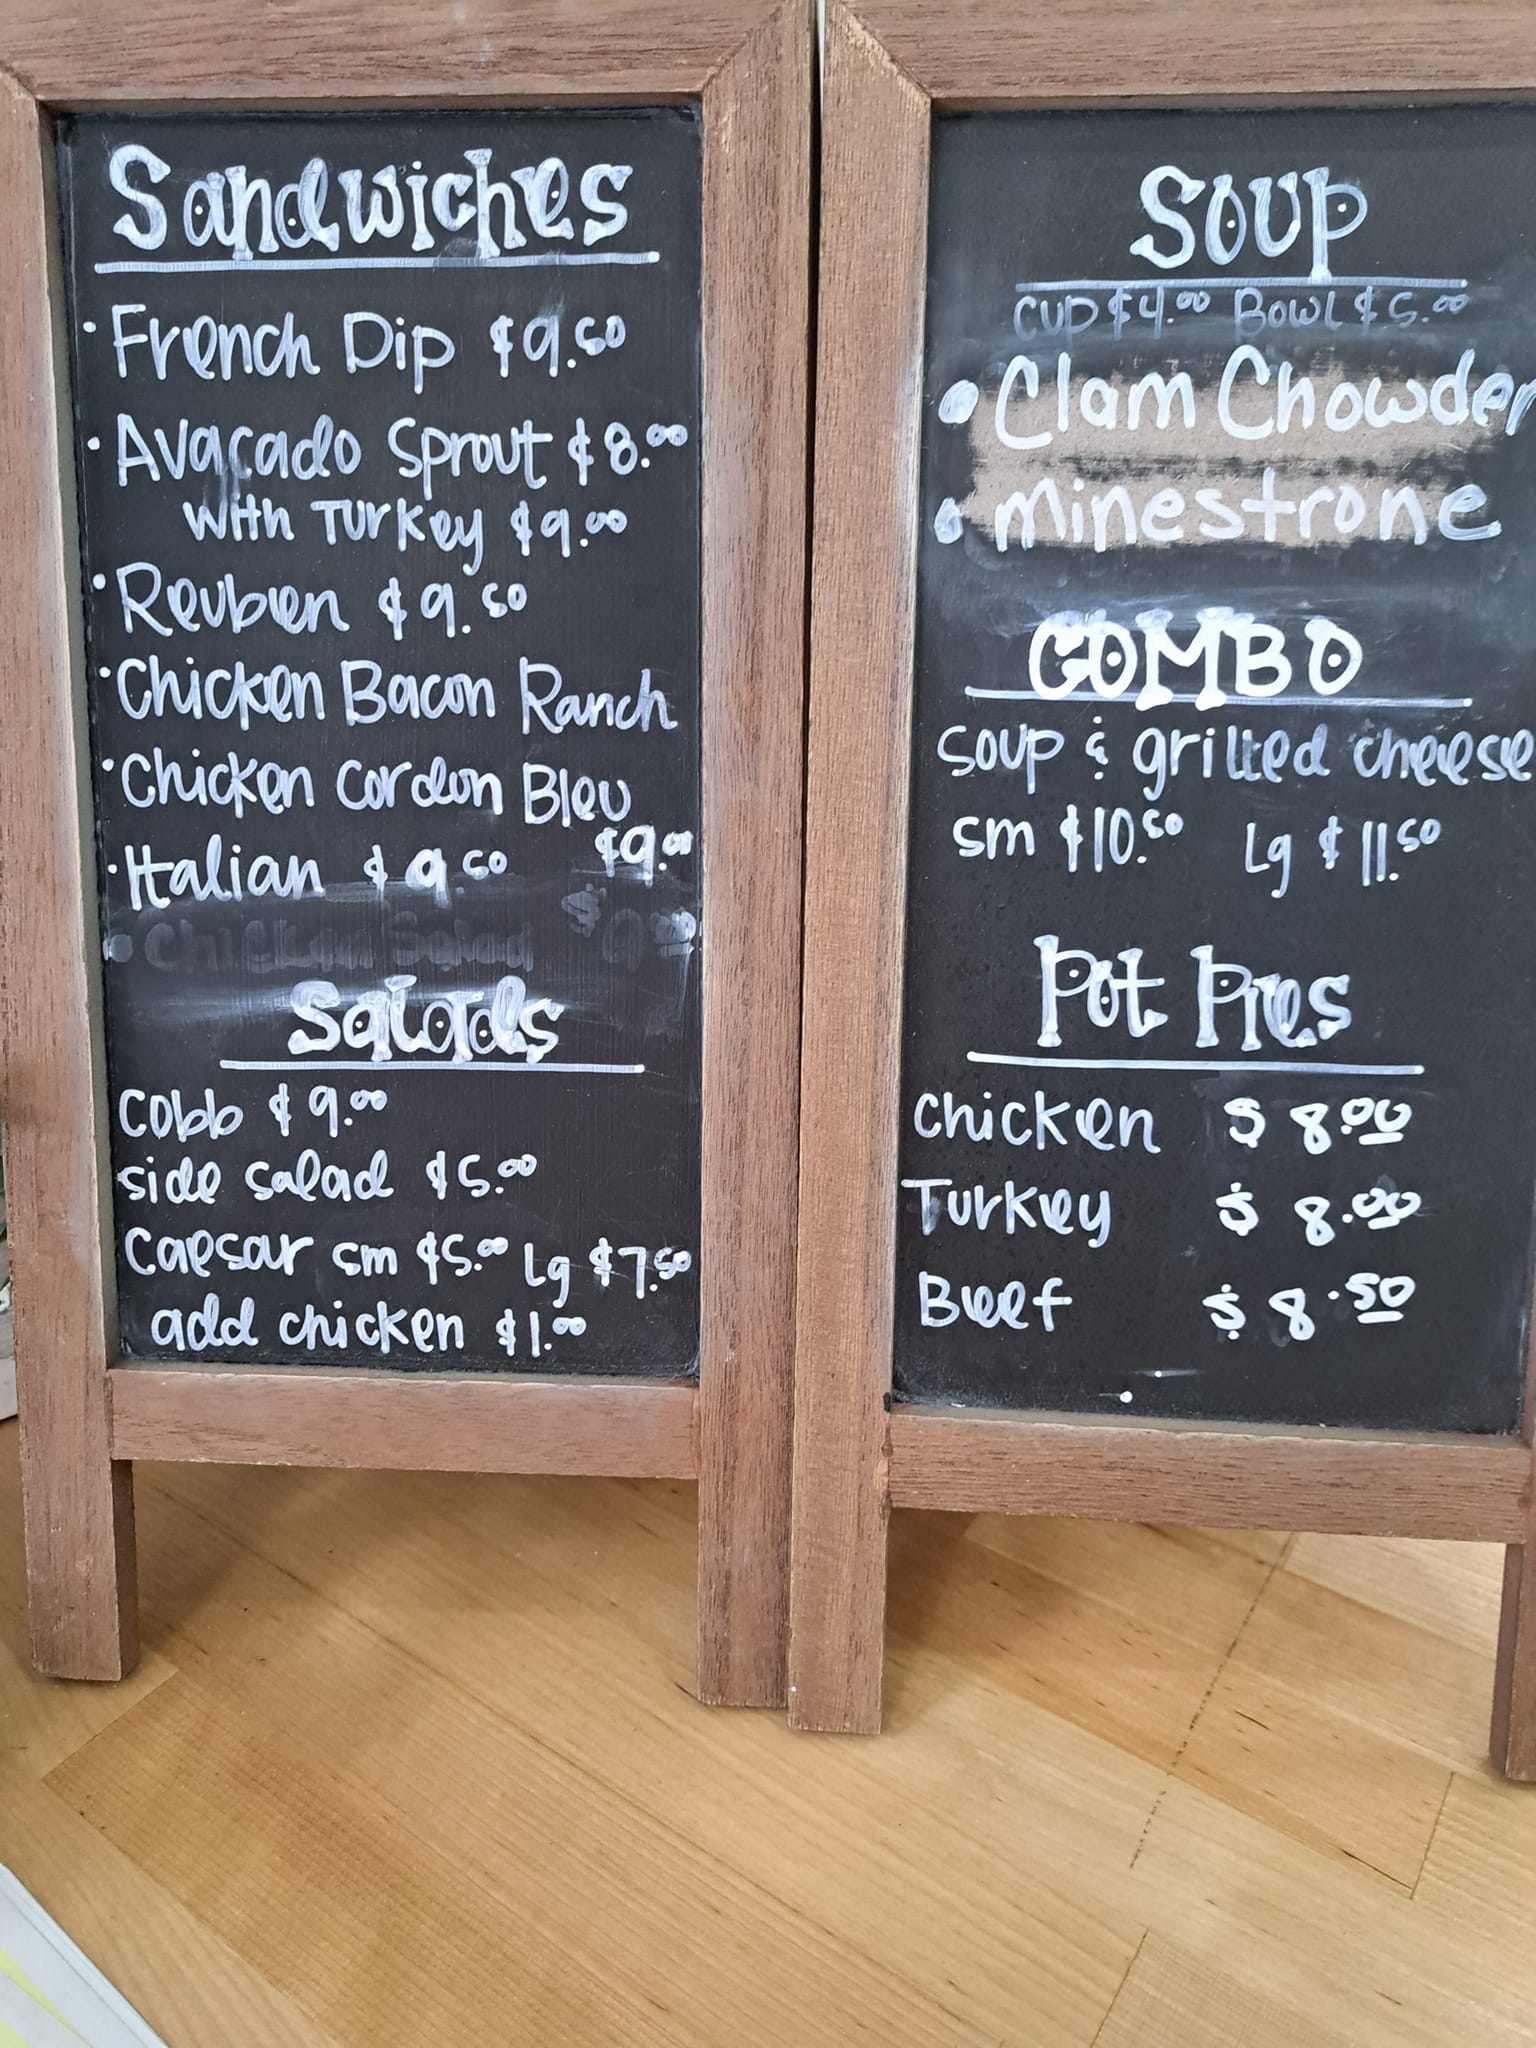 Sandwiches
• French Dip $9.50
• Avacado Sprout $8.00
with Turkey $9.00
• Reuben $9.50
• Chicken Bacon Ranch
• Chicken Cordon Bleu
$9.00
• Italian $9.50
• Chicken Salad $9.00
Salads
Cobb $9.00
side salad $5.00
Caesar sm $5.00 Lg $7.50
add chicken $1.00
Soup
Cup $4.00 Bowl $5.00
• Clam Chowder
• minestrone
COMBO
Soup & grilled cheese
sm $10.50 Lg $11.50
Pot Pies
Chicken $8.00
Turkey $8.00
Beef $8.50